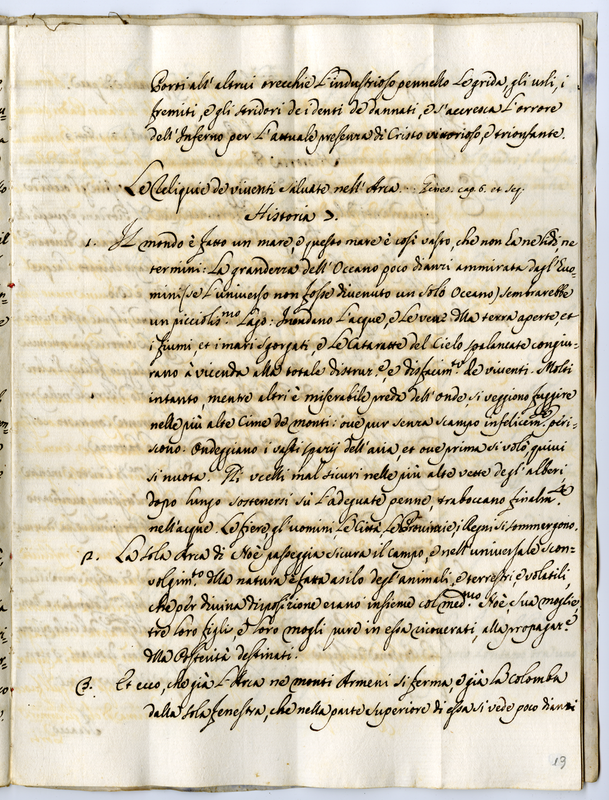 Porti all'altrui orecchie l'industrioso pennello le grida, gli urli, i
fremiti, e gli stridori de i denti de dannati, e s'accresca l'orrore
dell'Inferno per l'attuale presenza di Cristo vittorioso, e trionfante.
Le Reliquie de viventi salvate nell'Arca. Genes. cap. 6. et seq.
Historia
1. Il mondo è fatto un mare, e questo mare è così vasto, che non ha ne lidi, ne
termini: La grandezza dell'Oceano poco dianzi ammirata dagl'Huo-
mini (se l'universo non fosse divenuto un solo Oceano) sembrarebbe
un picciolis.mo Lago: Inondano l'acque, e le vene dlla terra aperte, et
i fiumi, et i mari sgorgati, e le Cataratte del Cielo spalancate congiu-
rano à vicenda alla totale distruz.e, e disfacim.to de viventi. Molti
intanto mentre altri è miserabile preda dell'onde, si veggiono fuggire
nelle più alte cime de monti: ove pur senza scampo infelicem.te peri-
scono. Ondeggiano i vasti spazij dell'aria, et ove prima si volò, quivi
si nuota. Gli ucelli mal sicuri nelle più alte vette degl'alberi
dopo lungo sostenersi sù l'adeguate penne, traboccano finalm.te
nell'acque. Le fiere, gl'uomini, le Città, le Provincie, i Regni si sommergono.
2. La sola Arca di Noè passeggia sicura il campo, e nell'universale scon-
volgim.to dlla natura è fatta asilo degl'animali, e terrestri, e volatili,
che per divina disposizione erano insieme col med.mo Noè, sua moglie,
tre loro figli, e loro mogli pure in essa ricoverati, alla propagaz.e
dlla Posterità destinati.
3. Et ecco, che già l'Arca ne monti Armeni si ferma, e già la colomba
dalla sola fenestra, che nella parte superiore di essa si vede poco dianzi
19